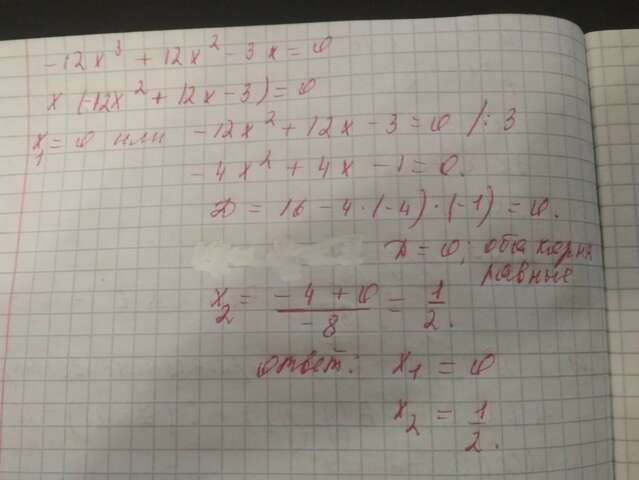 -12x³ + 12x² - 3x = 0
x (-12x² + 12x - 3) = 0
x₁ = 0 или -12x² + 12x - 3 = 0 /: 3
-4x² + 4x - 1 = 0.
D = 16 - 4·(-4)·(-1) = 0.
D = 0; оба корни
равные
x₂ = (-4 + 0)/(-8) = 1/2.
ответ: x₁ = 0
x₂ = 1/2.